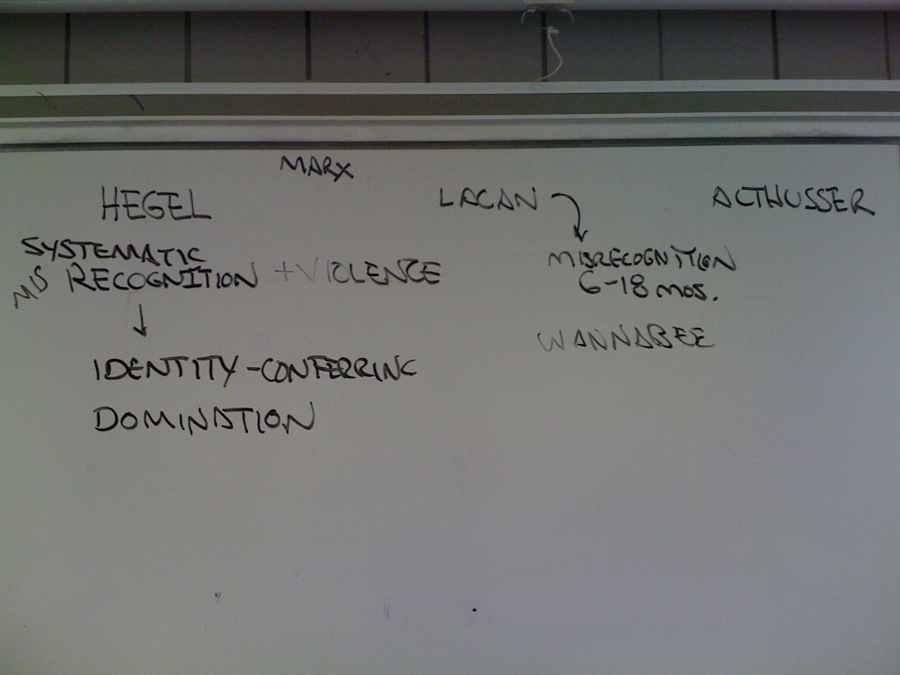 MARX
HEGEL
SYSTEMATIC
MIS RECOGNITION + VIOLENCE
IDENTITY-CONFERRING
DOMINATION
LACAN
MISRECOGNITION
6-18 mos.
WANNABEE
ALTHUSSER